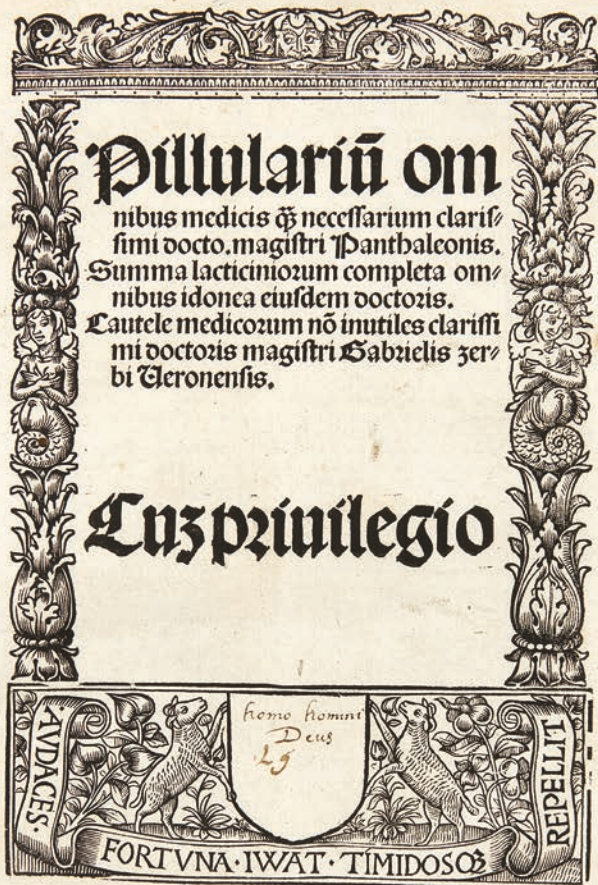 Pillulariū om
nibus medicis qȝ̄ necessarium claris⸗
simi docto. magistri Panthaleonis.
Summa lacticiniorum completa om⸗
nibus idonea eiusdem doctoris.
Cautele medicorum nō inutiles clarissi
mi doctoris magistri Gabrielis zer⸗
bi Ueronensis.
Cuȝ priuilegio
homo homini
Deus
·AVDACES·
FORTVNA·IWAT·TIMIDOSQȝ
REPELLIT